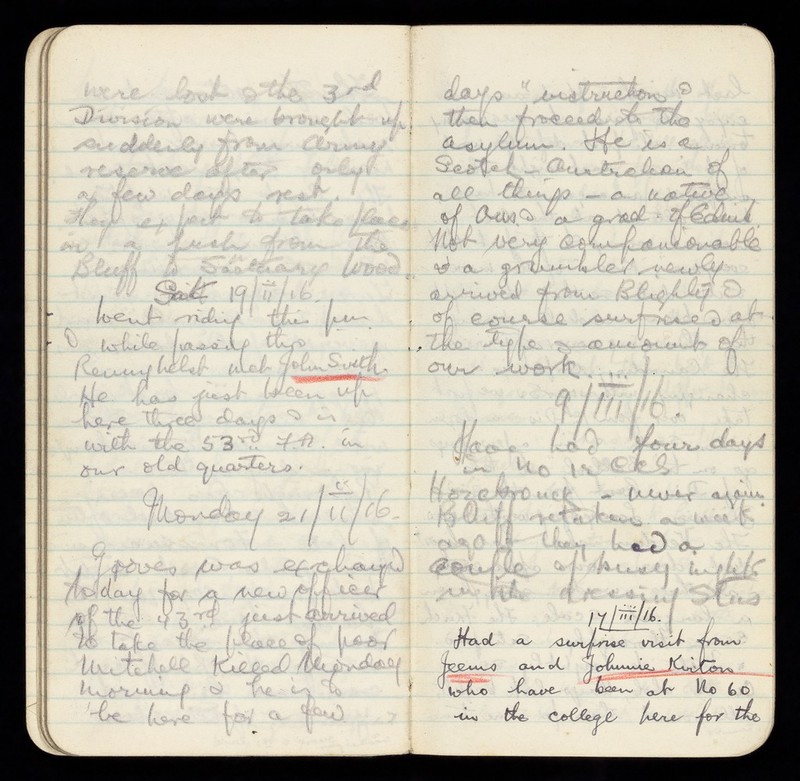 were lost & the 3rd
Division were brought up
suddenly from Army
reserve after only
a few days rest.
They expect to take place
in a push from the
Bluff to Sanctuary Wood
Sat 19/II/16.
Went riding this pm
& while passing thro
Renninghelst met John Smith.
He has just been up
here three days & is
with the 53rd F.A. in
our old quarters.
Monday 21/II/16.
Groves was exchang'd
today for a new officer
of the 43rd just arrived
to take the place of poor
Mitchell killed Monday
morning & he is to
be here for a few
days "instruction" &
then proceed to the
asylum. He is a
Scotch-Australian of
all things - a native
of Aus & a grad. of Edin.
Not very companionable
& a grumbler newly
arrived from Blighty &
of course surprised at
the type & amount of
our work.
9/III/16.
Have had four days
in No 12 CCS
Hazebrouck - never again.
Bluff retaken a week
ago - they had a
couple of busy nights
in the dressing Stns
17/III/16.
Had a surprise visit from
Jeems and Johnnie Kirton
who have been at No 60
in the college here for the